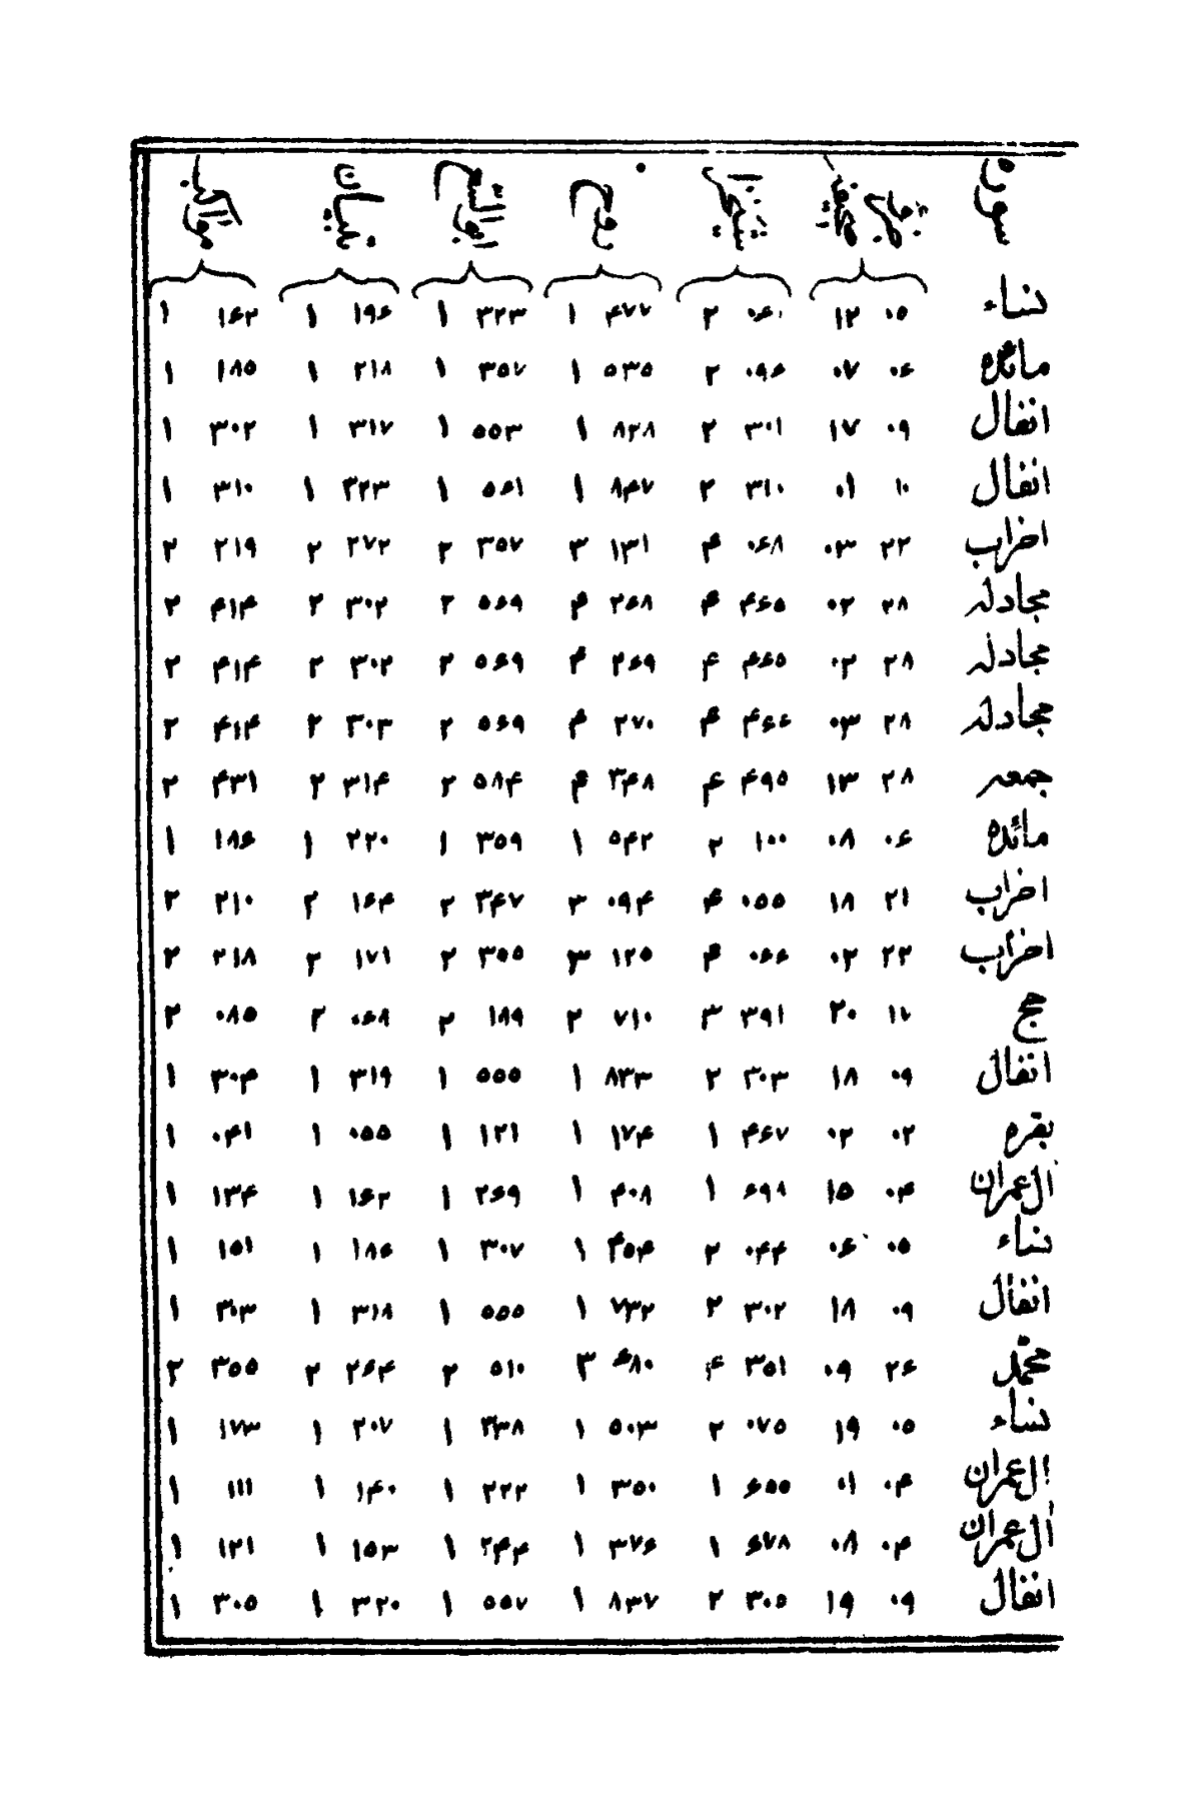 سوره
نساء ۰۵ ۱۲ ۰۶۱ ۲ ۴۷۷ ۱ ۳۲۳ ۱ ۱۹۶ ۱ ۱۶۲ ۱
مائده ۰۶ ۰۷ ۰۹۶ ۲ ۵۳۵ ۱ ۳۵۷ ۱ ۲۱۸ ۱ ۱۸۵ ۱
انفال ۰۹ ۱۷ ۳۰۱ ۲ ۸۲۸ ۱ ۵۵۳ ۱ ۳۱۷ ۱ ۳۰۲ ۱
انفال ۱۰ ۰۱ ۳۱۰ ۲ ۸۴۷ ۱ ۵۶۱ ۱ ۳۲۳ ۱ ۳۱۰ ۱
احزاب ۲۲ ۰۳ ۰۶۸ ۴ ۱۳۱ ۳ ۳۵۷ ۲ ۲۷۲ ۲ ۲۱۹ ۲
مجادله ۲۸ ۰۲ ۴۶۵ ۴ ۲۶۸ ۴ ۵۶۹ ۲ ۳۰۲ ۲ ۴۱۴ ۲
مجادله ۲۸ ۰۲ ۴۶۵ ۴ ۲۶۹ ۴ ۵۶۹ ۲ ۳۰۲ ۲ ۴۱۴ ۲
مجادله ۲۸ ۰۳ ۴۶۶ ۴ ۲۷۰ ۴ ۵۶۹ ۲ ۳۰۳ ۲ ۴۱۴ ۲
جمعه ۲۸ ۱۳ ۴۹۵ ۴ ۳۴۸ ۴ ۵۸۴ ۲ ۳۱۴ ۲ ۴۳۱ ۲
مائده ۰۶ ۰۸ ۱۰۰ ۲ ۵۴۲ ۱ ۳۵۹ ۱ ۲۲۰ ۱ ۱۸۶ ۱
احزاب ۲۱ ۱۸ ۰۵۵ ۴ ۰۹۴ ۳ ۳۴۷ ۲ ۱۶۴ ۲ ۲۱۰ ۲
احزاب ۲۲ ۰۲ ۰۶۶ ۴ ۱۲۵ ۳ ۳۵۵ ۲ ۱۷۱ ۲ ۲۱۸ ۲
حج ۱۷ ۲۰ ۳۹۱ ۳ ۷۱۰ ۲ ۱۸۹ ۲ ۰۶۸ ۲ ۰۸۵ ۲
انفال ۰۹ ۱۸ ۳۰۳ ۲ ۸۳۳ ۱ ۵۵۵ ۱ ۳۱۹ ۱ ۳۰۴ ۱
بقره ۰۲ ۰۲ ۴۶۷ ۱ ۱۷۴ ۱ ۱۲۱ ۱ ۰۵۵ ۱ ۰۴۱ ۱
ال عمران ۰۴ ۱۵ ۶۹۸ ۱ ۴۰۸ ۱ ۲۶۹ ۱ ۱۶۲ ۱ ۱۳۴ ۱
نساء ۰۵ ۰۶ ۰۴۴ ۲ ۴۵۴ ۱ ۳۰۷ ۱ ۱۸۶ ۱ ۱۵۱ ۱
انفال ۰۹ ۱۸ ۳۰۲ ۲ ۷۳۲ ۱ ۵۵۵ ۱ ۳۱۸ ۱ ۳۰۳ ۱
محمّد ۲۶ ۰۹ ۳۵۱ ۴ ۶۸۰ ۳ ۵۱۰ ۲ ۲۶۴ ۲ ۳۵۵ ۲
نساء ۰۵ ۱۹ ۰۷۵ ۲ ۵۰۳ ۱ ۳۳۸ ۱ ۲۰۷ ۱ ۱۷۳ ۱
ال عمران ۰۴ ۰۱ ۶۵۵ ۱ ۳۵۰ ۱ ۲۲۲ ۱ ۱۴۰ ۱ ۱۱۱ ۱
ال عمران ۰۴ ۰۸ ۶۷۸ ۱ ۳۷۶ ۱ ۲۴۴ ۱ ۱۵۳ ۱ ۱۲۱ ۱
انفال ۰۹ ۱۹ ۳۰۵ ۲ ۸۳۷ ۱ ۵۵۷ ۱ ۳۲۰ ۱ ۳۰۵ ۱